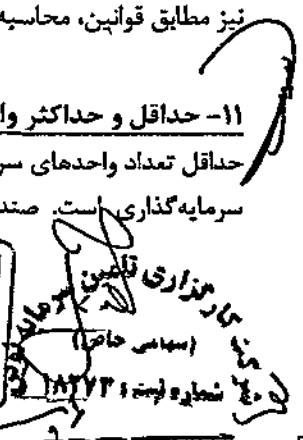 نیز مطابق قوانین، محاسبه
۱۱- حداقل و حداکثر وا
حداقل تعداد واحدهای سر
سرمایه‌گذاری است. صند
شرکت کارگزاری تامین سرمایه
(سهامی خاص)
شماره ثبت: ۱۸۲۷۳